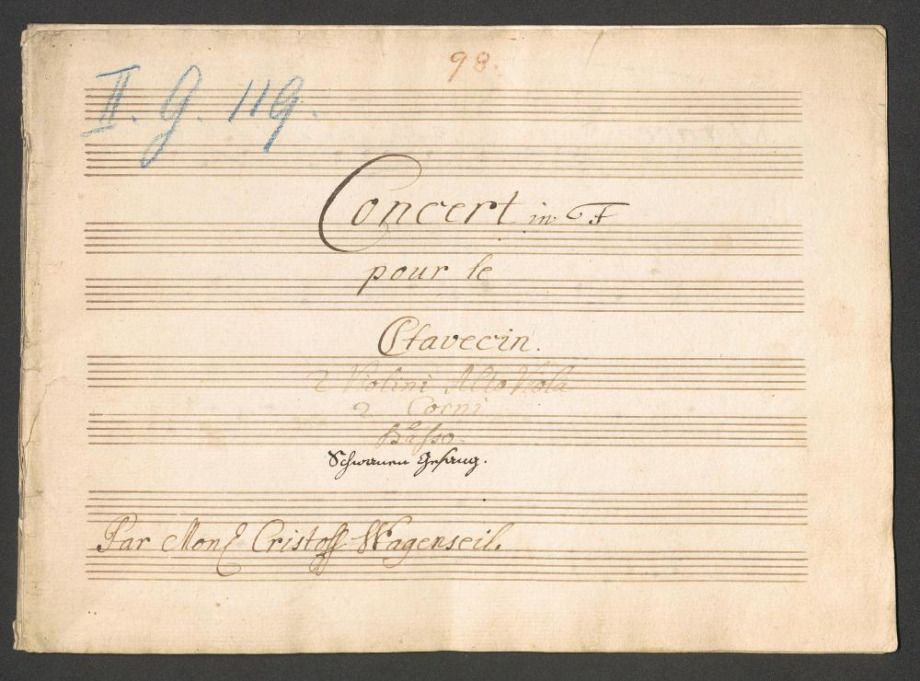 98.
II. G. 119.
Concert in F
pour le
Clavecin.
2 Violini Alto Viola
2 Corni
Basso.
Schwanen Gesang.
Par Mons Cristoff Wagenseil.